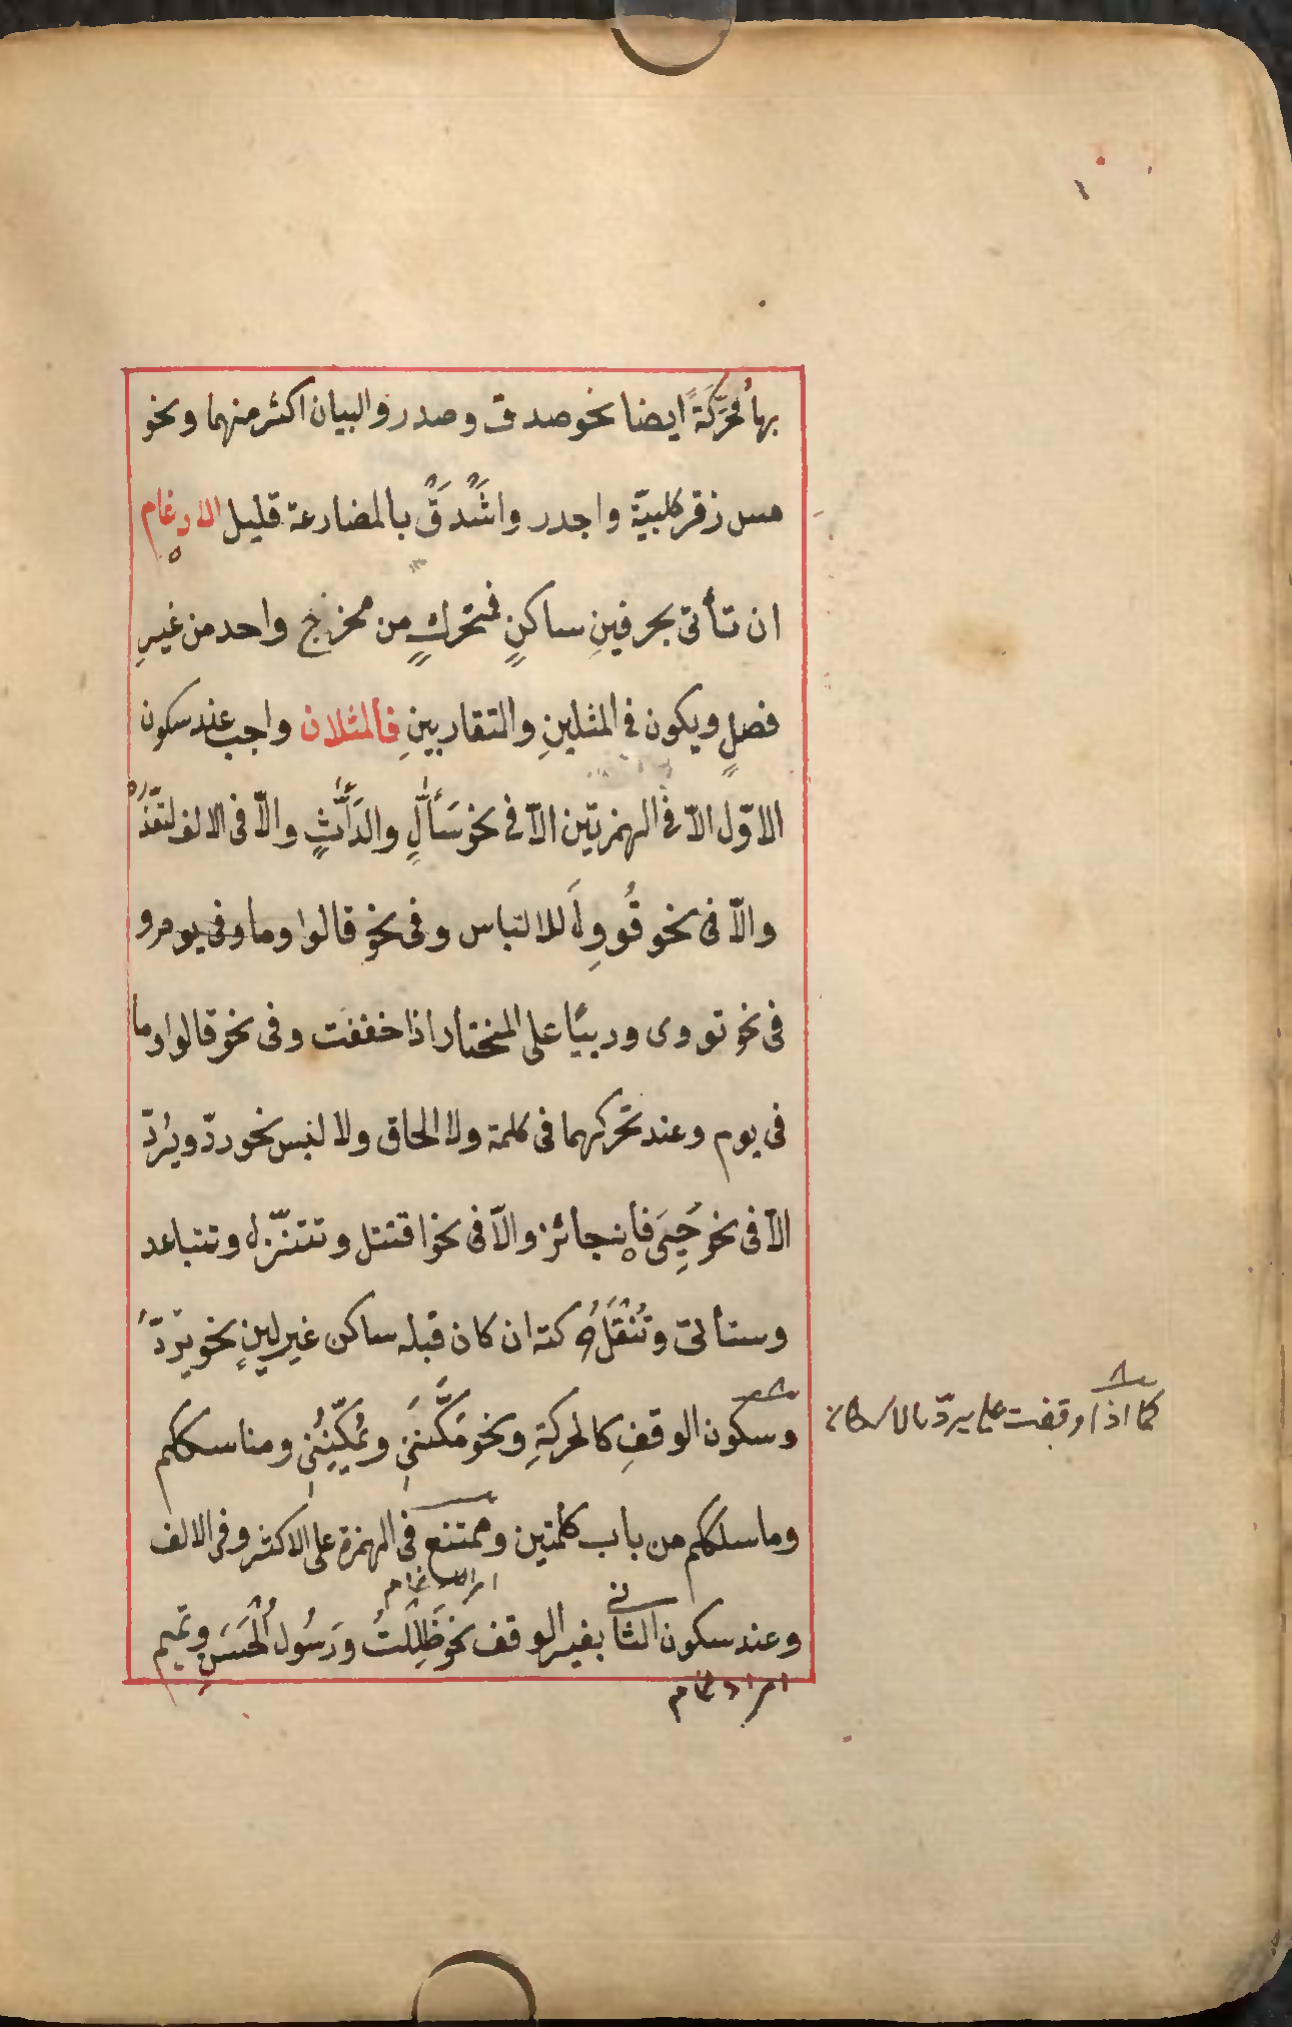 بها مُحَرَّكَةً ايضا نحو صدق وصدر والبيان اكثر منهما ونحو
مس زقر كلبيّة واجدر واشَدَقَّ بالمضارعة قليل الادغام
ان تأتى بحرفينِ ساكنٍ فمتحركٍ من مخرج واحد من غيرِ
فصلٍ ويكون فى المثلينِ والمتقاربينِ فالمثلان واجب عند سكون
الاوّل الاّ فى الهمزتين الاّ فى نحو سَأَّلٍ والدَأَّثِ والاّ فى الالف لتعَذُّرٍ
والاّ فى نحو قُووِلَ للالتباس وفى نحو قالوا وما وفى يوم و
فى نحو تووى ورييًا على المختار اذا خففت وفى نحو قالوا وما
فى يوم وعند تحركهما فى كلمة ولا الحاق ولا لبس نحو ردّ ويردّ
الاّ فى نحو حَيِىَ فانه جائز والاّ فى نحو اقتتل وتتنزّل وتتباعد
وستأتى وتُنْقَلُ حركته ان كان قبله ساكن غير لينٍ نحو يردّ
وسكون الوقفِ كالحركةِ ونحو مَكَّننى ويُمَكِّنُنى ومناسككم
وما سلككم من باب كلمتين وممتنع فى الهمزة على الاكثر وفى الالف
اى الادغام
وعند سكون الثانى بغير الوقف نحو ظَلِلْتُ ورَسُولُ الْحَسَنِ وتميم
اى ادغام
كما اذا وقفت على يردّ بالاسكان